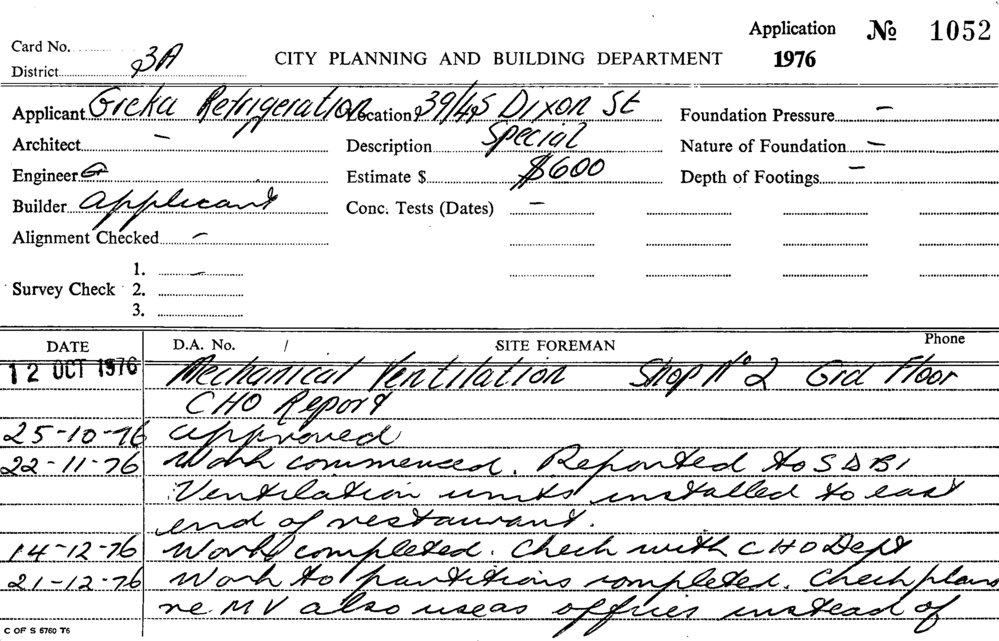 Application No 1052
Card No.
District 3A
CITY PLANNING AND BUILDING DEPARTMENT 1976
Applicant Greka Refrigeration Location 39/45 Dixon St Foundation Pressure –
Architect – Description Special Nature of Foundation –
Engineer Estimate $ $600 Depth of Footings –
Builder Applicant Conc. Tests (Dates) –
Alignment Checked –
1. –
Survey Check 2.
3.
DATE D.A. No. / SITE FOREMAN Phone
12 OCT 1976 Mechanical Ventilation Shop No 2 Grd Floor
CHO Report
25-10-76 approved
22-11-76 Work commenced. Reported to SDBI
Ventilation units installed to east
end of restaurant.
14-12-76 Work completed. Check with CHO Dept
21-12-76 Work to partitions completed. Check plans
re MV also use as offices instead of
C OF S 5760 T6